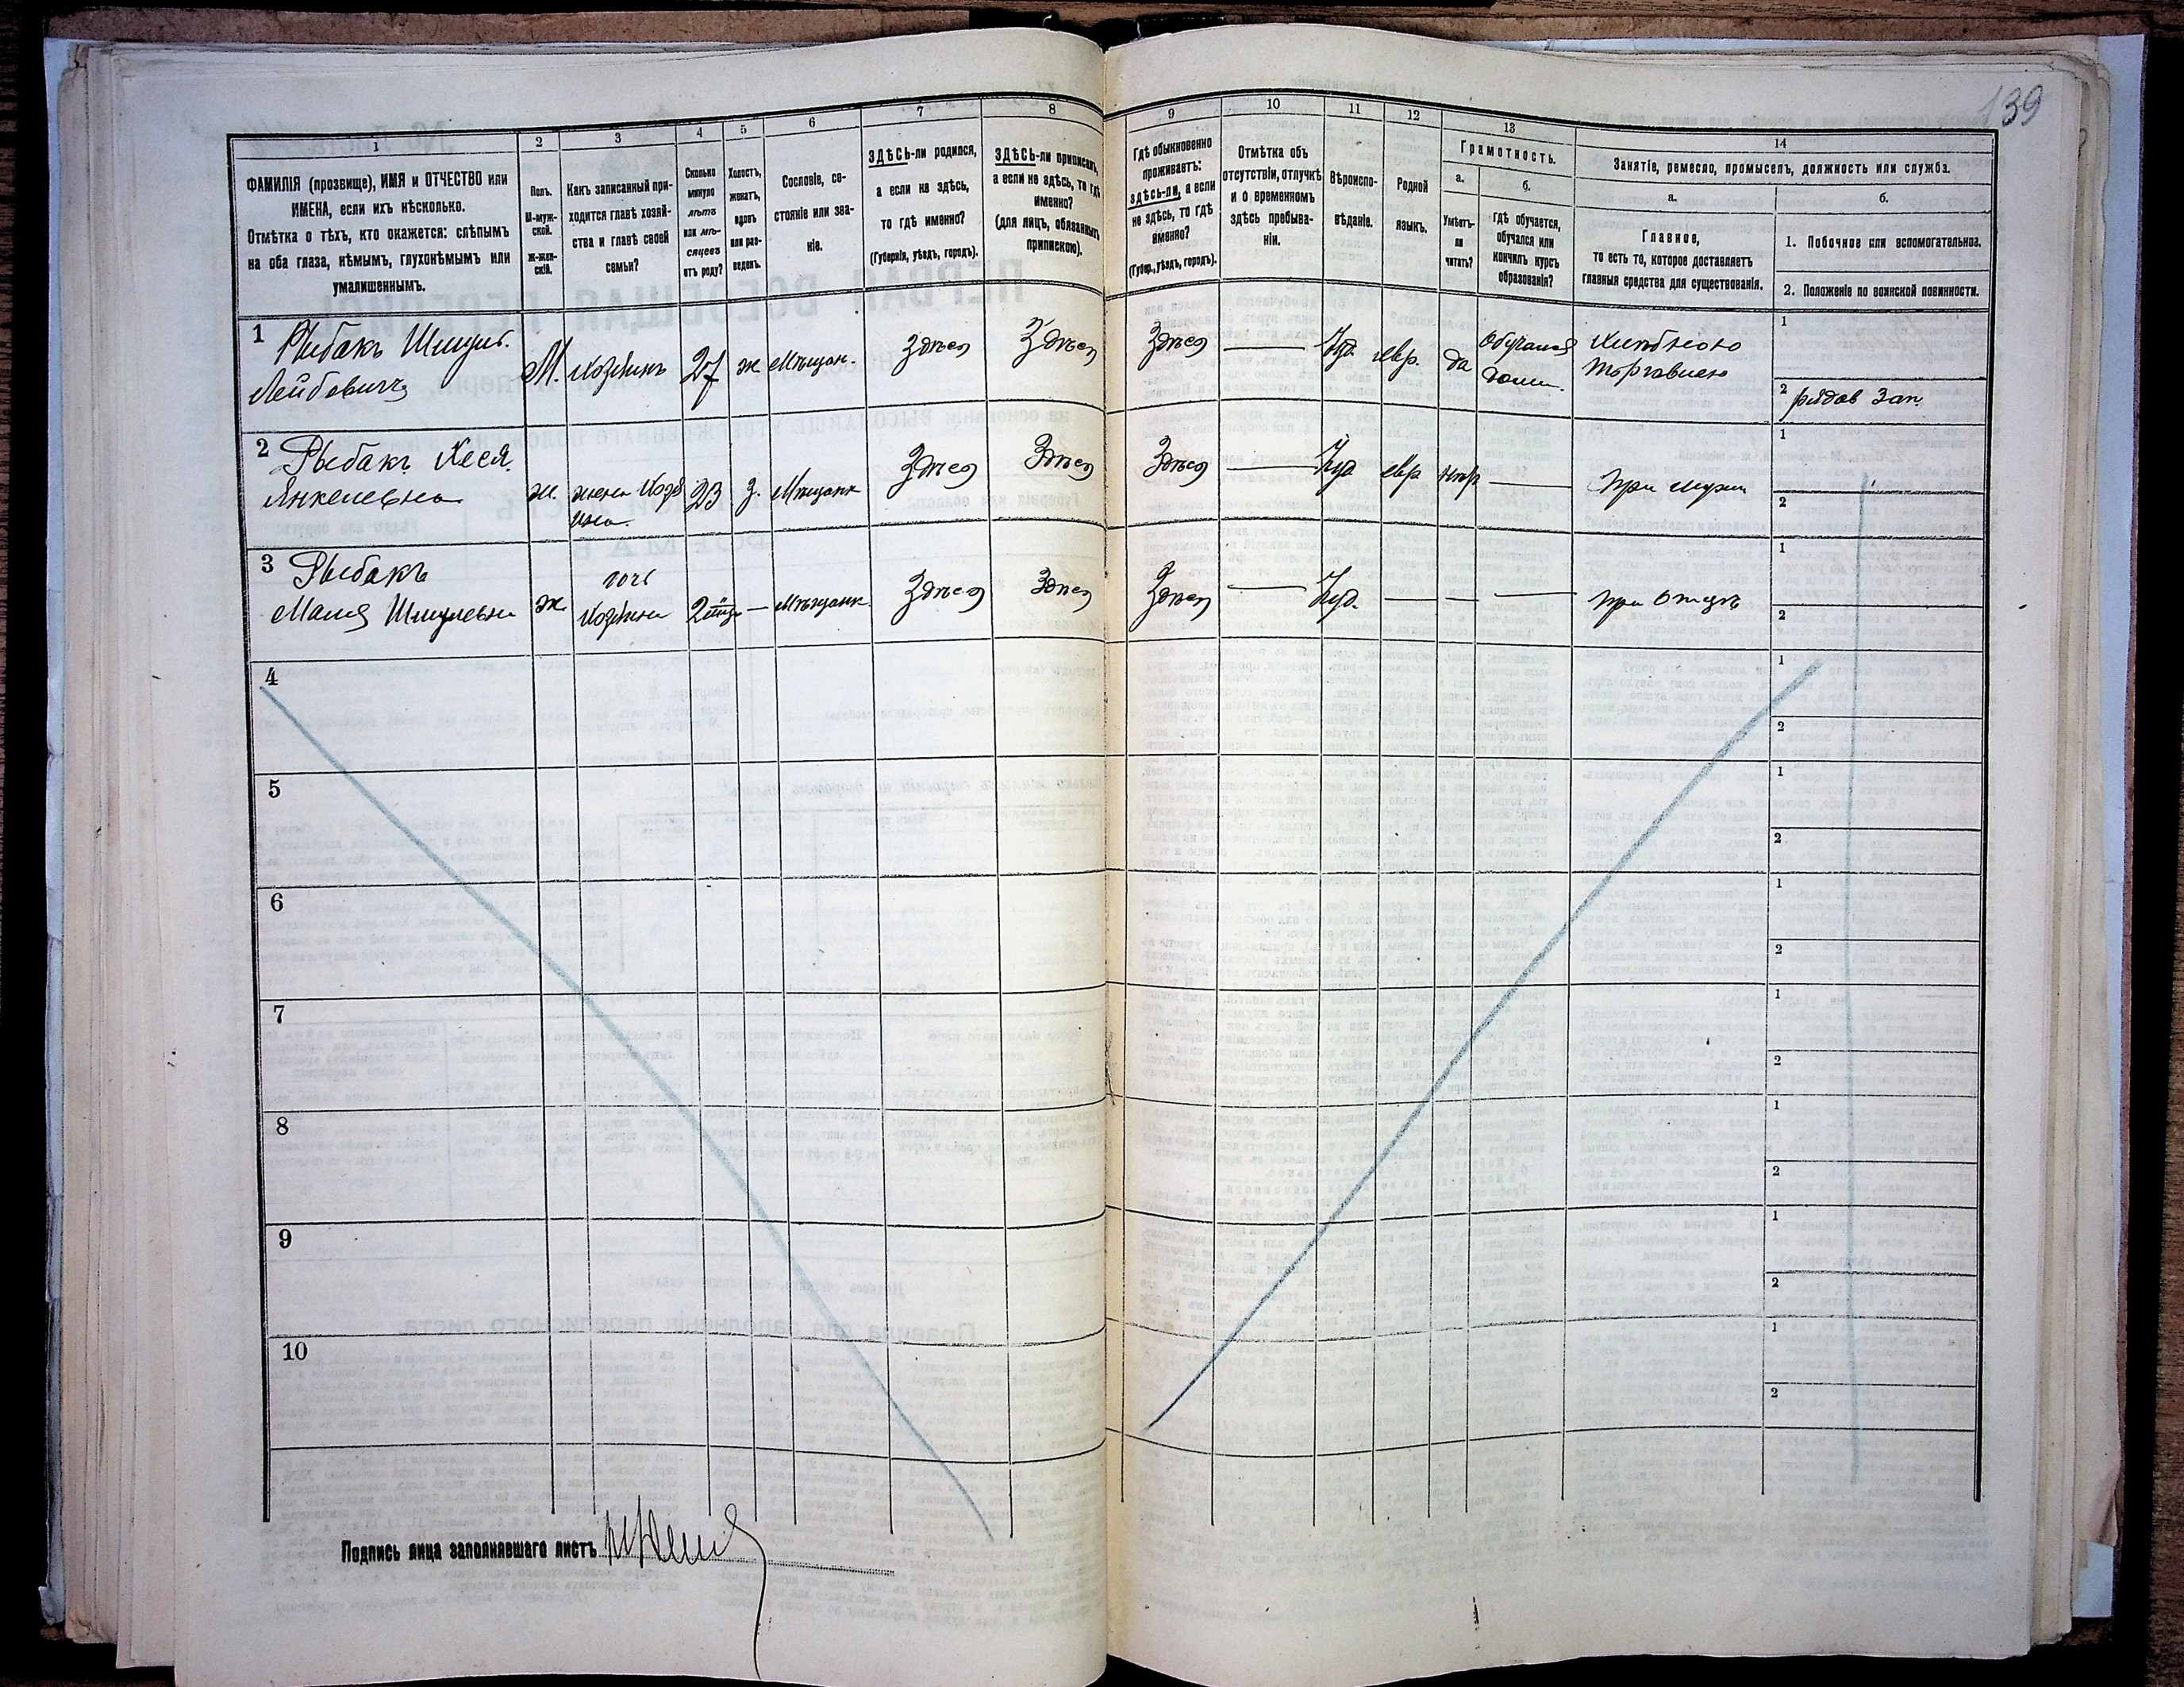 139
1
2
3
4
5
6
7
8
9
10
11
12
13
14
ФАМИЛІЯ (прозвище), ИМЯ и ОТЧЕСТВО или
ИМЕНА, если ихъ нѣсколько.
Отмѣтка о тѣхъ, кто окажется: слѣпымъ
на оба глаза, нѣмымъ, глухонѣмымъ или
умалишеннымъ.
Полъ.
М-муж-
ской.
Ж-жен-
скій.
Какъ записанный при-
ходится главѣ хозяй-
ства и главѣ своей
семьи?
Сколько
минуло
лѣтъ
или мѣ-
сяцевъ
отъ роду?
Холостъ,
женатъ,
вдовъ
или раз-
веденъ.
Сословіе, со-
стояніе или зва-
ніе.
ЗДѢСЬ-ли родился,
а если не здѣсь,
то гдѣ именно?
(Губернія, уѣздъ, городъ).
ЗДѢСЬ-ли приписанъ,
а если не здѣсь, то гдѣ
именно?
(для лицъ, обязанныхъ
припискою).
Гдѣ обыкновенно
проживаетъ:
здѣсь-ли, а если
не здѣсь, то гдѣ
именно?
(Губер., уѣздъ, городъ).
Отмѣтка объ
отсутствіи, отлучкѣ
и о временномъ
здѣсь пребыва-
ніи.
Вѣроиспо-
вѣданіе.
Родной
языкъ.
Грамотность.
а.
Умѣетъ-
ли
читать?
б.
Гдѣ обучается,
обучался или
кончилъ курсъ
образованія?
Занятіе, ремесло, промыселъ, должность или служба.
а.
Главное,
то есть то, которое доставляетъ
главныя средства для существованія.
б.
1. Побочное или вспомогательное.
2. Положеніе по воинской повинности.
1 Рыбакъ Шмуль
Лейбовичъ
М. Хозяинъ 27 ж Мѣщан. Здѣсь Здѣсь Здѣсь — Іуд. евр. да Обучался
дома. Хлѣбною
торговлею
1
2 рядов зап.
2 Рыбакъ Хася
Янкелевна
ж. жена Хозя
ина 23 з. Мѣщанк Здѣсь Здѣсь Здѣсь — Іуд евр нѣт — при мужи
1
2
3 Рыбакъ
Малия Шмулевна
ж. дочь
Хозяина 2 — Мѣщанк. Здѣсь Здѣсь Здѣсь — Іуд. — — — при отцѣ
1
2
4
1
2
5
1
2
6
1
2
7
1
2
8
1
2
9
1
2
10
1
2
Подпись лица заполнявшаго листъ